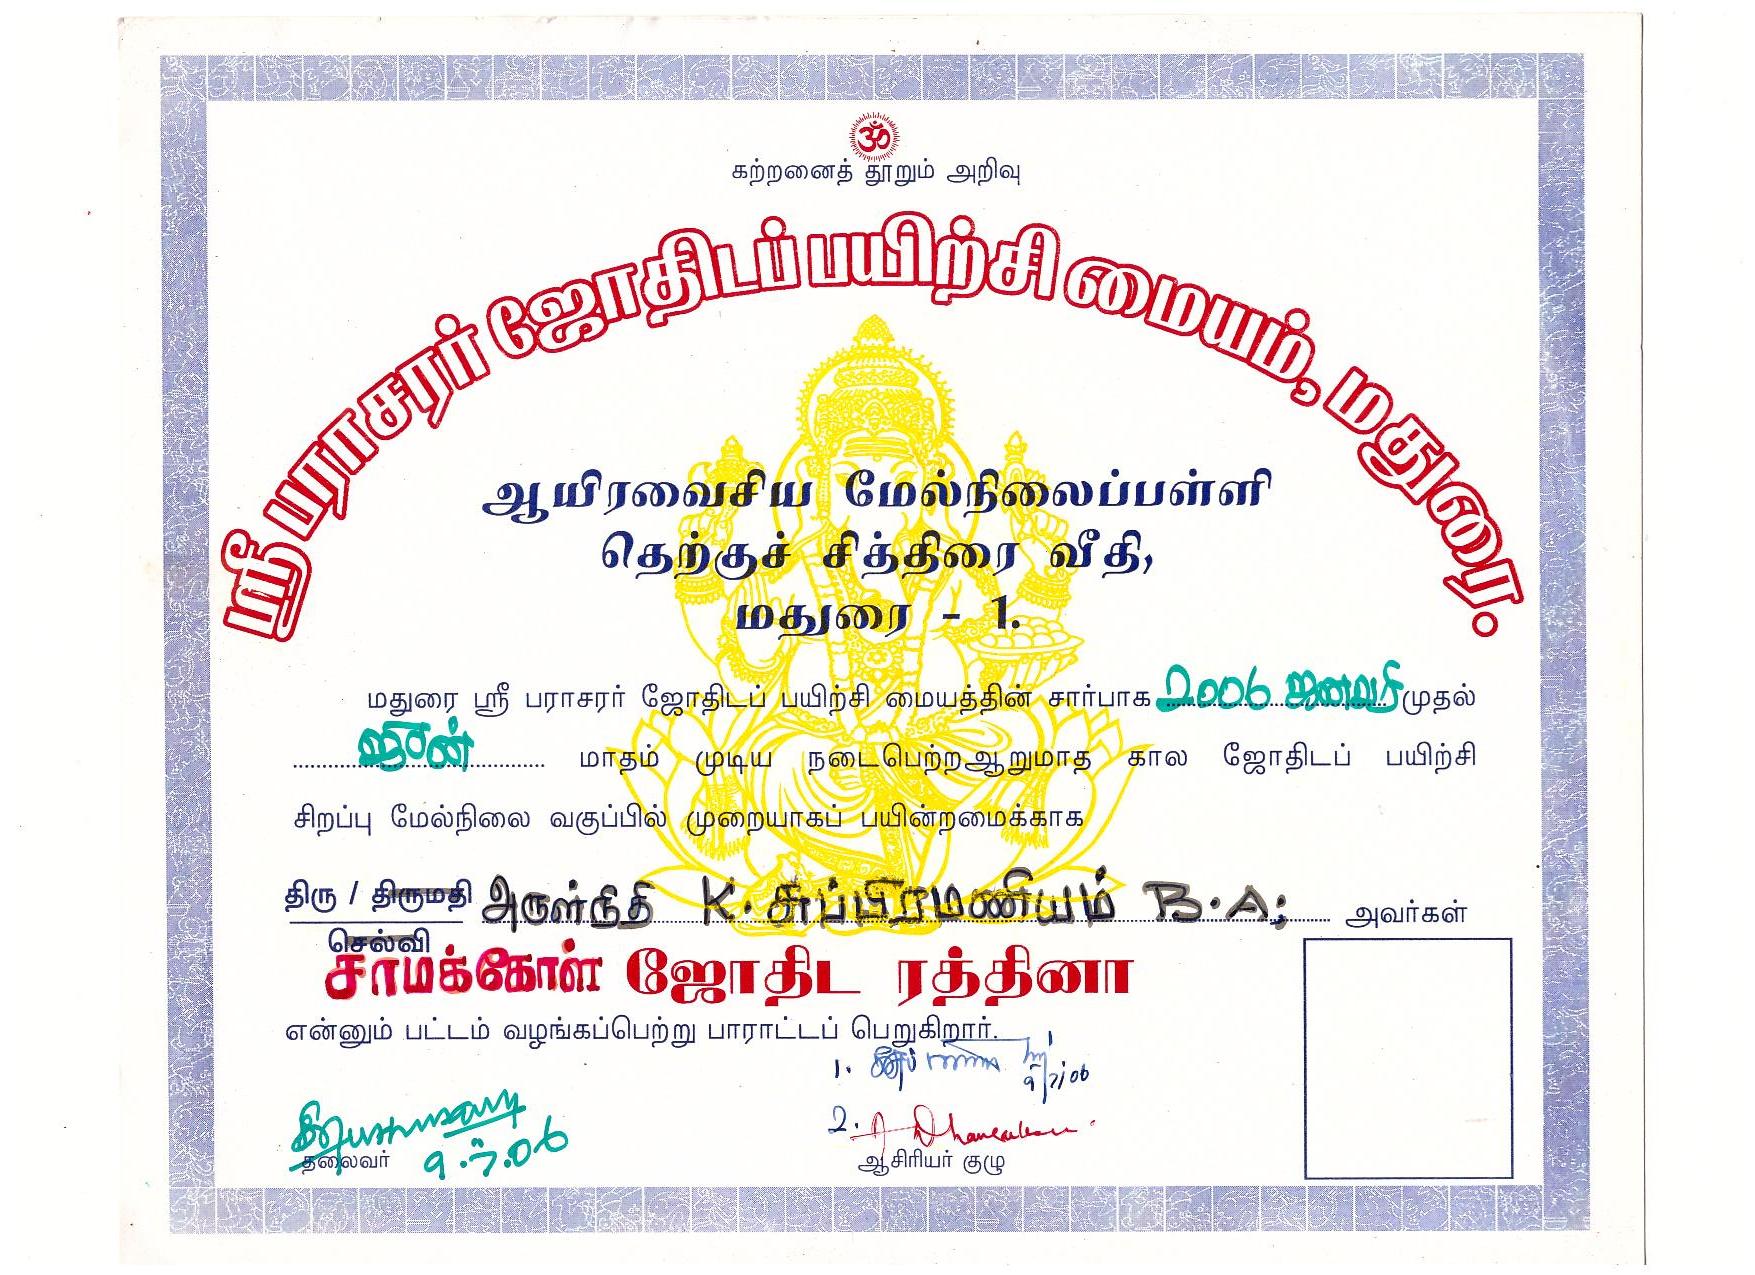 ॐ
கற்றனைத் தூறும் அறிவு
ஸ்ரீ பராசரர் ஜோதிடப் பயிற்சி மையம், மதுரை.
ஆயிரவைசிய மேல்நிலைப்பள்ளி
தெற்குச் சித்திரை வீதி,
மதுரை - 1.
மதுரை ஸ்ரீ பராசரர் ஜோதிடப் பயிற்சி மையத்தின் சார்பாக 2006 ஜனவரி முதல்
ஜூன் மாதம் முடிய நடைபெற்ற ஆறுமாத கால ஜோதிடப் பயிற்சி
சிறப்பு மேல்நிலை வகுப்பில் முறையாகப் பயின்றமைக்காக
திரு / திருமதி அருள்நிதி K. சுப்பிரமணியம் B.A; அவர்கள்
செல்வி
சாமக்கோள் ஜோதிட ரத்தினா
என்னும் பட்டம் வழங்கப்பெற்று பாராட்டப் பெறுகிறார்.
1. 9/7/06
2.
9.7.06
தலைவர் ஆசிரியர் குழு